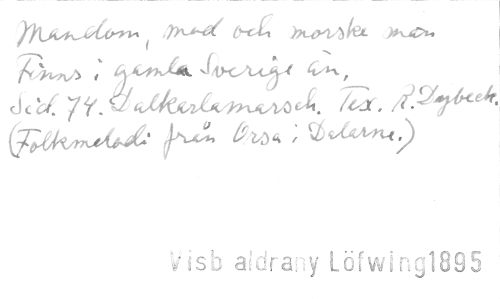 Mandom, mod och morske män
Finns i gamla Sverige än,
Sid. 74. Dalkarlamarsch. Tex. R. Dybeck.
(Folkmelodi från Orsa i Dalarne.)
Visb aldrany Löfwing1895